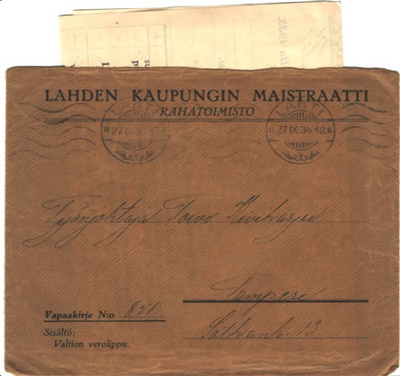 LAHDEN KAUPUNGIN MAISTRAATTI
RAHATOIMISTO
LAHTI
27.IX.34
LAHTI
27.IX.34
Työnjohtaja Toivo
Tampere
13
Vapaakirje N:o 821
Sisältö:
Valtion verolippu.